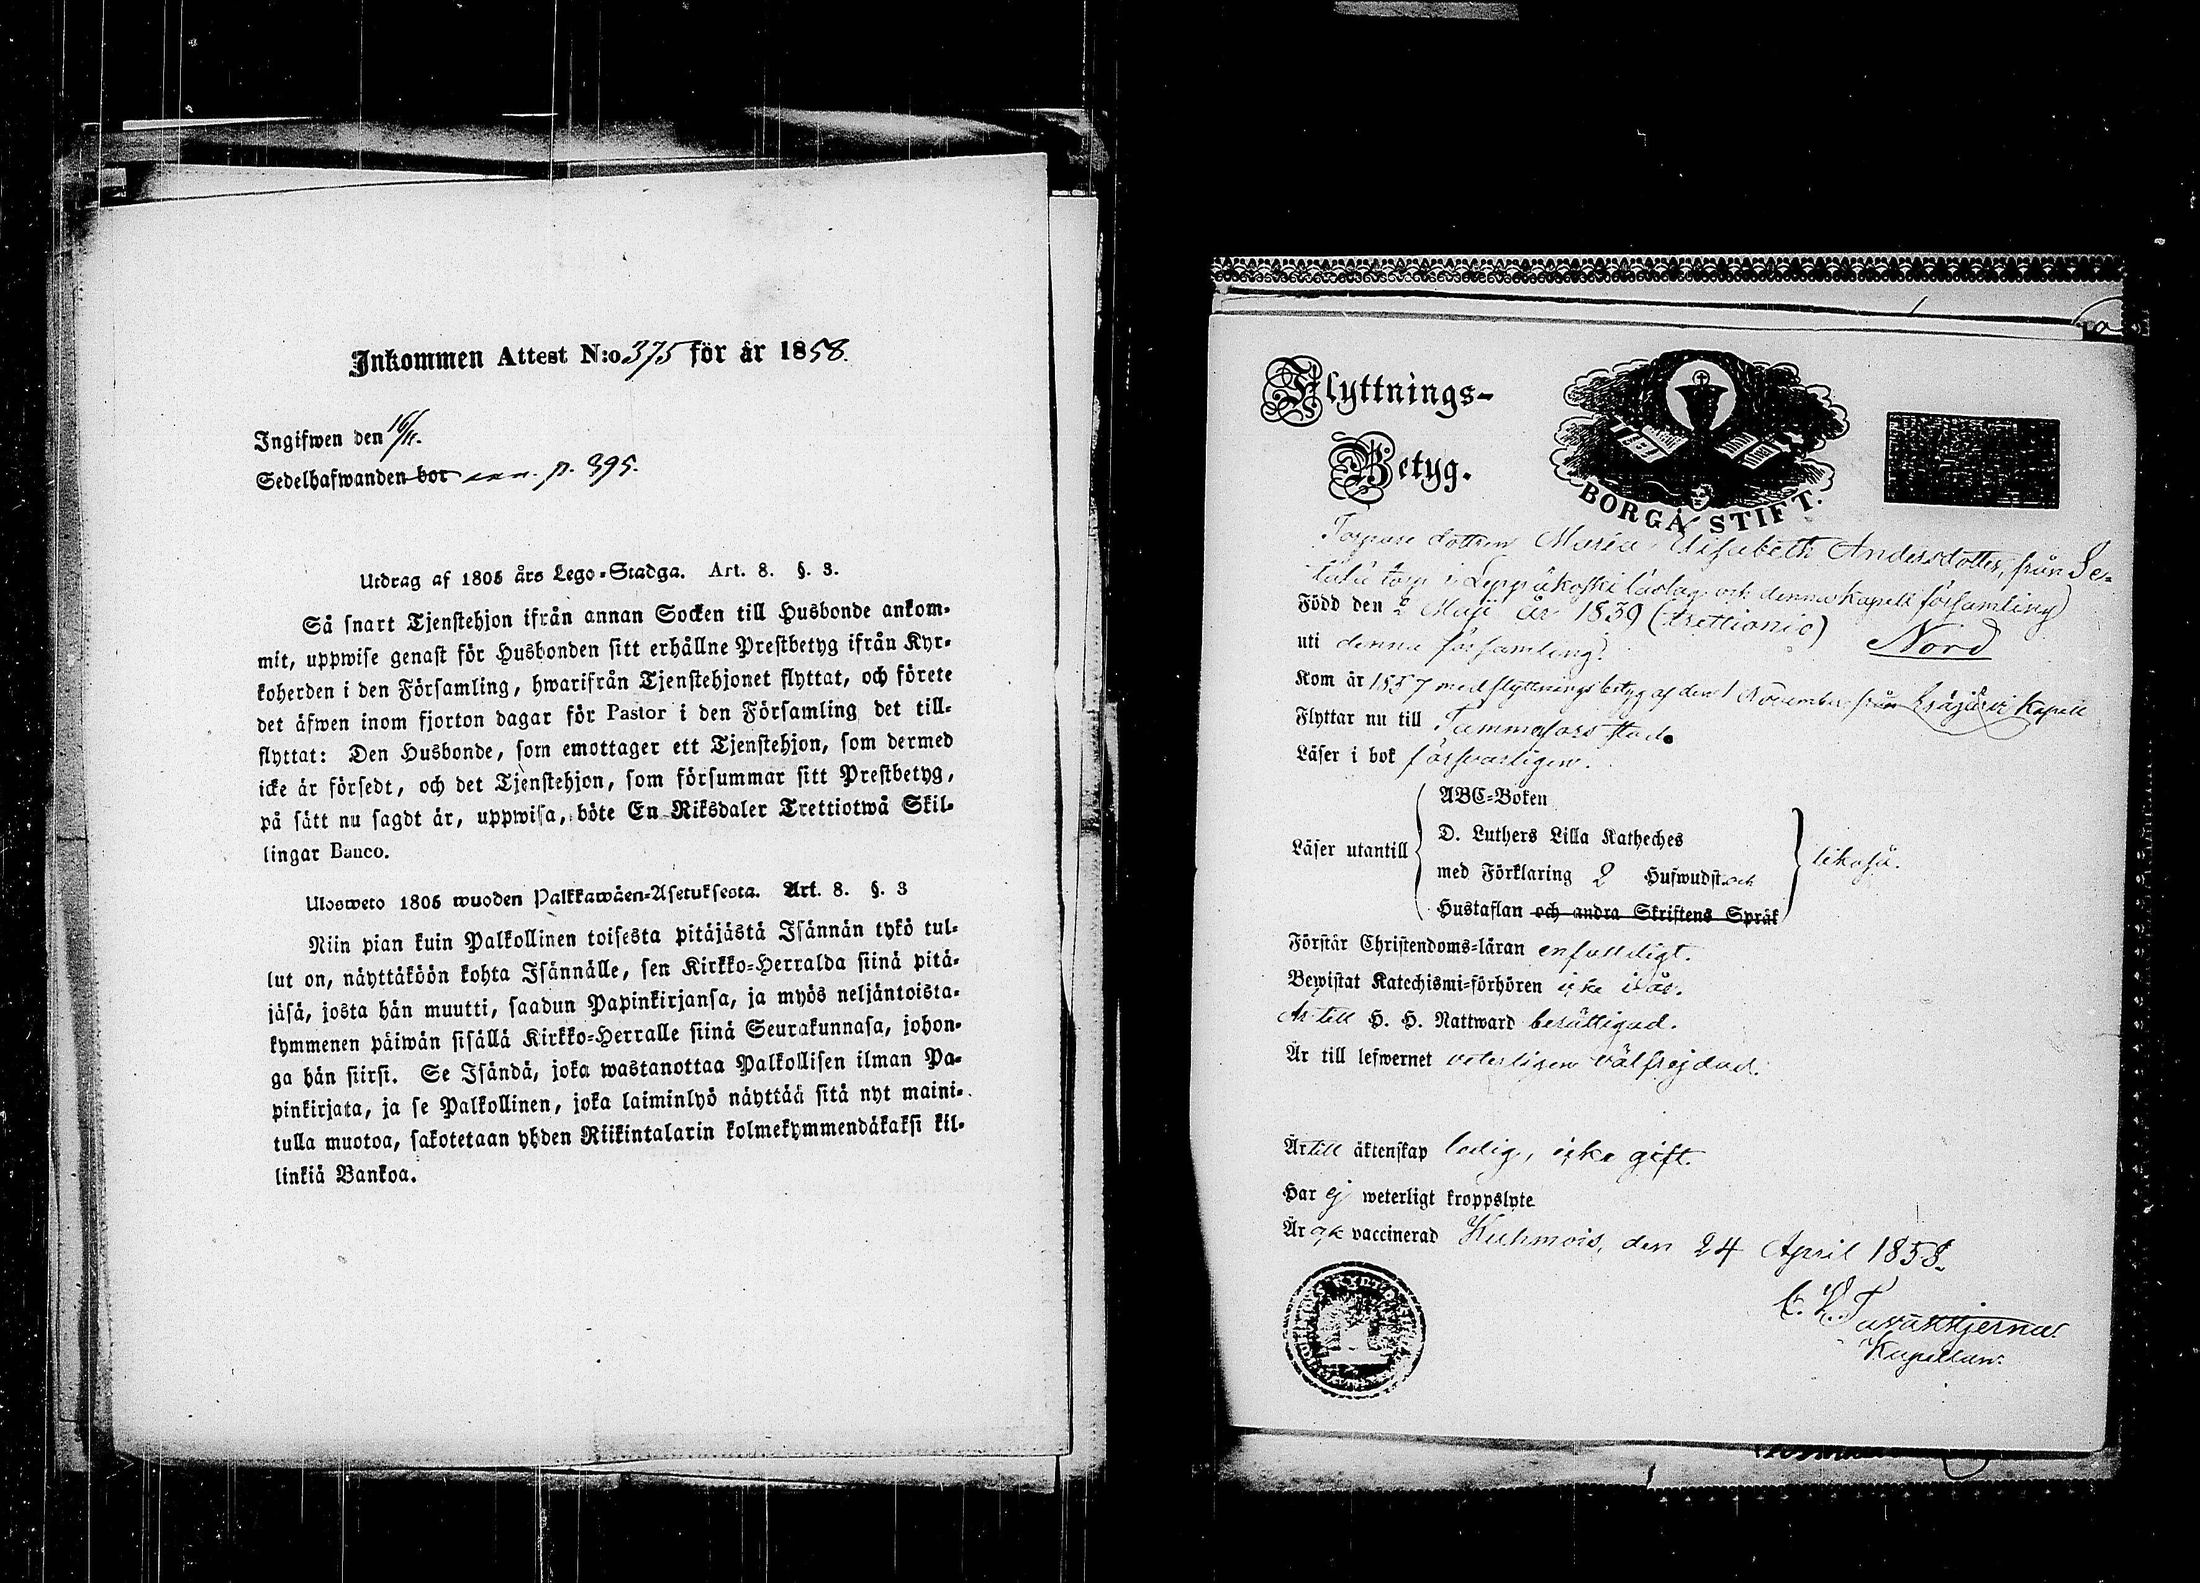 Inkommen Attest N:o 375 för år 1858.
Ingifwen den 16/11.
Sedelhafwanden bor ann. p. 395.
Utdrag af 1805 års Lego-Stadga. Art. 8. §. 3.
Så snart Tjenstehjon ifrån annan Socken till Husbonde ankom-
mit, uppwise genast för Husbonden sitt erhållne Prestbetyg ifrån Kyr-
koherden i den Församling, hwarifrån Tjenstehjonet flyttat, och förete
det äfwen inom fjorton dagar för Pastor i den Församling det till-
flyttat: Den Husbonde, som emottager ett Tjenstehjon, som dermed
icke är försedt, och det Tjenstehjon, som försummar sitt Prestbetyg,
på sätt nu sagdt är, uppwisa, böte En Riksdaler Trettiotwå Skil-
lingar Banco.
Ulosweto 1805 wuoden Palkkawäen-Asetuksesta. Art. 8. §. 3
Niin pian kuin Palkollinen toisesta pitäjästä Isännän tykö tul-
lut on, näyttäköön kohta Isännälle, sen Kirkko-Herralda siinä pitä-
jäsä, josta hän muutti, saadun Papinkirjansa, ja myös neljäntoista-
kymmenen päiwän sisällä Kirkko-Herralle siinä Seurakunnasa, johon-
ga hän siirsi. Se Isändä, joka wastanottaa Palkollisen ilman Pa-
pinkirjata, ja se Palkollinen, joka laiminlyö näyttää sitä nyt maini-
tulla muotoa, sakotetaan yhden Riikintalarin kolmekymmendäkaksi kil-
linkiä Bankoa.
Flyttnings-
Betyg.
BORGÅ STIFT.
Torpare dottren Maria Elisabeth Andersdotter, från Se-
tälä torp i Leppäkoski låslag och denna Kapell församling
Född den 2 Maji år 1839 (trettionio)
uti denna församling. Nord
Kom år 1857 med flyttningsbetyg af den 1 November från Kapell
Flyttar nu till Tammefors stad.
Läser i bok försvarligen.
ABC-Boken
D. Luthers Lilla Katheches
Läser utantill
med Förklaring 2 Hufwudst. och
likaså.
Hustaflan och andra Skriftens Språk
Förstår Christendoms-läran enfaldigt.
Bewistat Katechismi-förhören icke i år.
Är till H. H. Nattward berättigad.
Är till lefwernet veterligen välfrejdad.
Är till äktenskap ledig, icke gift.
Har ej weterligt kroppslyte
Är ok vaccinerad Kuhmois, den 24 April 1858.
C. L. Tavaststjerna.
Kapellan.